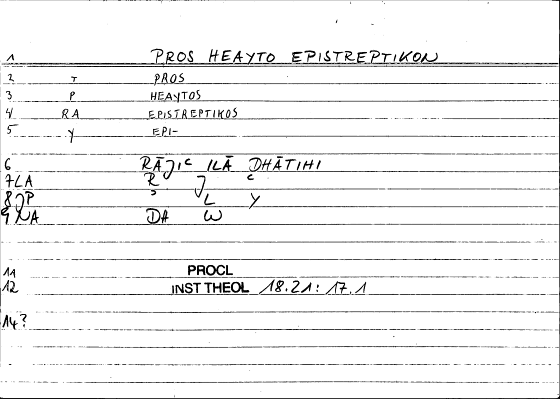 1 PROS HEAYTO EPISTREPTIKON
2 T PROS
3 P HEAYTOS
4 RA EPISTREPTIKOS
5 Y EPI-
6 RĀJIC ILĀ DHĀTIHI
7 LA R J C
8 JP ɔ L Y
9 NA DA W
11 PROCL
12 INST THEOL 18.21: 17.1
14?